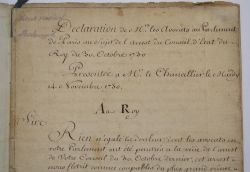 Declaration de M.rs les Avocats au Parlement
de Paris au sujet de l'arrest du Conseil d'Etat du
Roy du 30. Octobre 1730.
Presentée à M.r le Chancellier, le Mardy
14. Novembre 1730.
Au Roy
Sire
Rien n'égale la douleur, dont les avocats en
votre Parlement ont été penetrés a la veüe de l'arrest
de Votre Conseil du 30. Octobre dernier, cet arrest